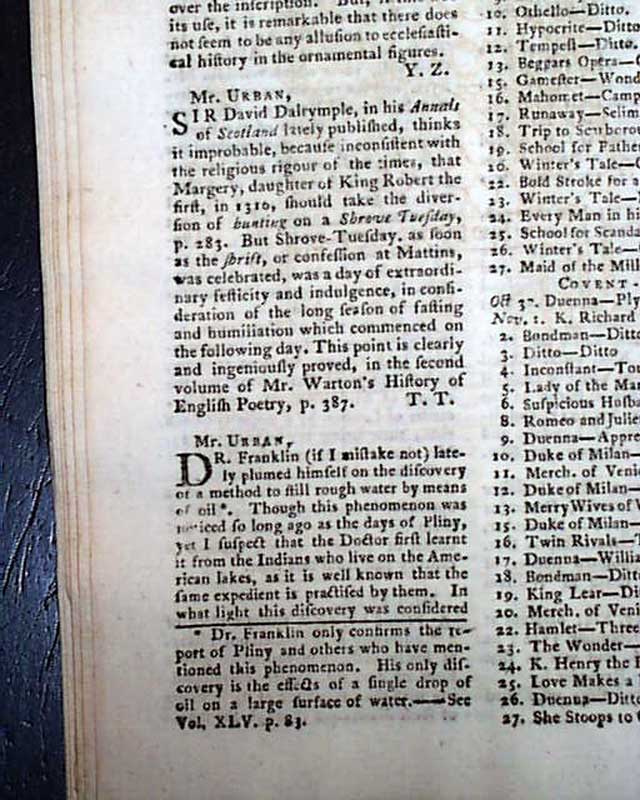 over the inscription. But,
its use, it is remarkable that there does
not seem to be any allusion to ecclesiasti-
cal history in the ornamental figures.
Y. Z.
Mr. URBAN,
SIR David Dalrymple, in his Annals
of Scotland lately publiſhed, thinks
it improbable, becauſe inconſiſtent with
the religious rigour of the times, that
Margery, daughter of King Robert the
firſt, in 1316, ſhould take the diver-
ſion of hunting on a Shrove Tueſday,
p. 283. But Shrove-Tueſday. as ſoon
as the ſhrift, or confeſſion at Mattins,
was celebrated, was a day of extraordi-
nary feſticity and indulgence, in conſi-
deration of the long ſeaſon of faſting
and humiliation which commenced on
the following day. This point is clearly
and ingeniouſly proved, in the ſecond
volume of Mr. Warton's Hiſtory of
Engliſh Poetry, p. 387. T. T.
Mr. URBAN,
DR. Franklin (if I miſtake not) late-
ly plumed himſelf on the diſcovery
of a method to ſtill rough water by means
of oil*. Though this phenomenon was
noticed ſo long ago as the days of Pliny,
yet I ſuſpect that the Doctor firſt learnt
it from the Indians who live on the Ame-
rican lakes, as it is well known that the
ſame expedient is practiſed by them. In
what light this diſcovery was conſidered
* Dr. Franklin only confirms the re-
port of Pliny and others who have men-
tioned this phenomenon. His only diſ-
covery is the effects of a ſingle drop of
oil on a large ſurface of water.——See
Vol. XLV. p. 83.
10. Othello—Ditto.
11. Hypocrite—Ditto.
12. Tempeſt—Ditto.
13. Beggars Opera—
15. Gameſter—Wond
16. Mahomet—Camp
17. Runaway—Selim
18. Trip to Scarborou
19. School for Father
20. Winter's Tale—
22. Bold Stroke for a
23. Winter's Tale—
24. Every Man in his
25. School for Scanda
26. Winter's Tale—
27. Maid of the Mill
COVENT-
Oct 30. Duenna—
Nov. 1. K. Richard
2. Bondman—Ditto
3. Ditto—Ditto
4. Inconſtant—
5. Lady of the Ma
6. Suſpicious Huſba
8. Romeo and Julie
9. Duenna—Appre
10. Duke of Milan—
11. Merch. of Veni
12. Duke of Milan—
13. Merry Wives of W
15. Duke of Milan—
16. Twin Rivals—T
17. Duenna—Willia
18. Bondman—Ditt
19. King Lear—Di
20. Merch. of Veni
22. Hamlet—Three
23. The Wonder—
24. K. Henry the
25. Love Makes a
26. Duenna—Ditto
27. She Stoops to